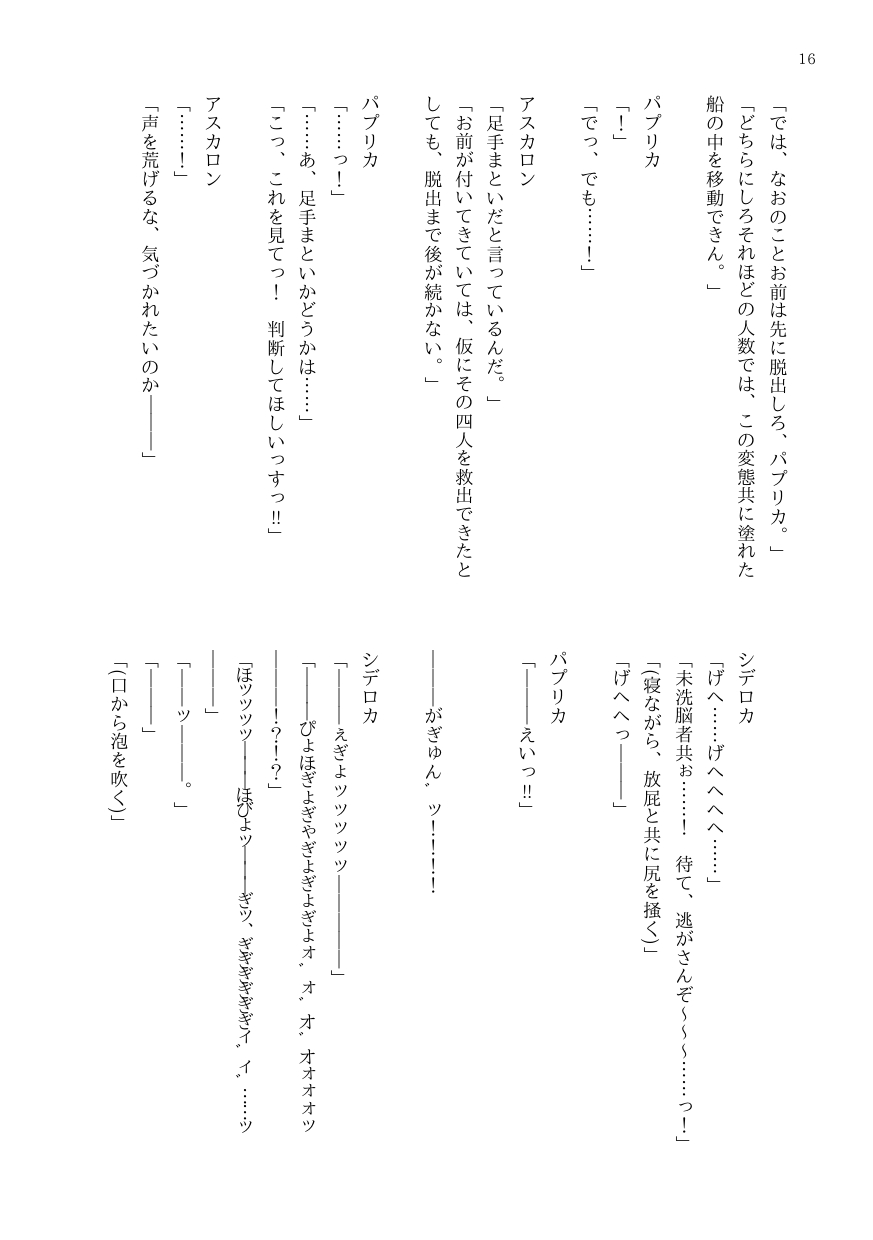 16
「では、なおのことお前は先に脱出しろ、パプリカ。」
「どちらにしろそれほどの人数では、この変態共に塗れた
船の中を移動できん。」
パプリカ
「！」
「でっ、でも……！」
アスカロン
「足手まといだと言っているんだ。」
「お前が付いてきていては、仮にその四人を救出できたと
しても、脱出まで後が続かない。」
パプリカ
「……っ！」
「……あ、足手まといかどうかは……」
「こっ、これを見てっ！　判断してほしいっすっ‼」
アスカロン
「……！」
「声を荒げるな、気づかれたいのか―――」
シデロカ
「げへ……げへへへへ……」
「未洗脳者共ぉ……！　待て、逃がさんぞ～～～……っ！」
「(寝ながら、放屁と共に尻を掻く)」
「げへへっ―――」
パプリカ
「―――えいっ‼」
―――がぎゅん゛ッ！！！！
シデロカ
「―――ぇぎょッッッッッ―――――」
「―――ぴょほぎょぎゃぎょぎょぎょォ゛ォ゛オ゛オォォォッ
―――！？！？」
「ほッッッッ―――ほぴょッ―――ぎッ、ぎぎぎぎぎぎィ゛ィ゛……ッ
―――」
「――ッ―――。」
「―――」
「(口から泡を吹く)」